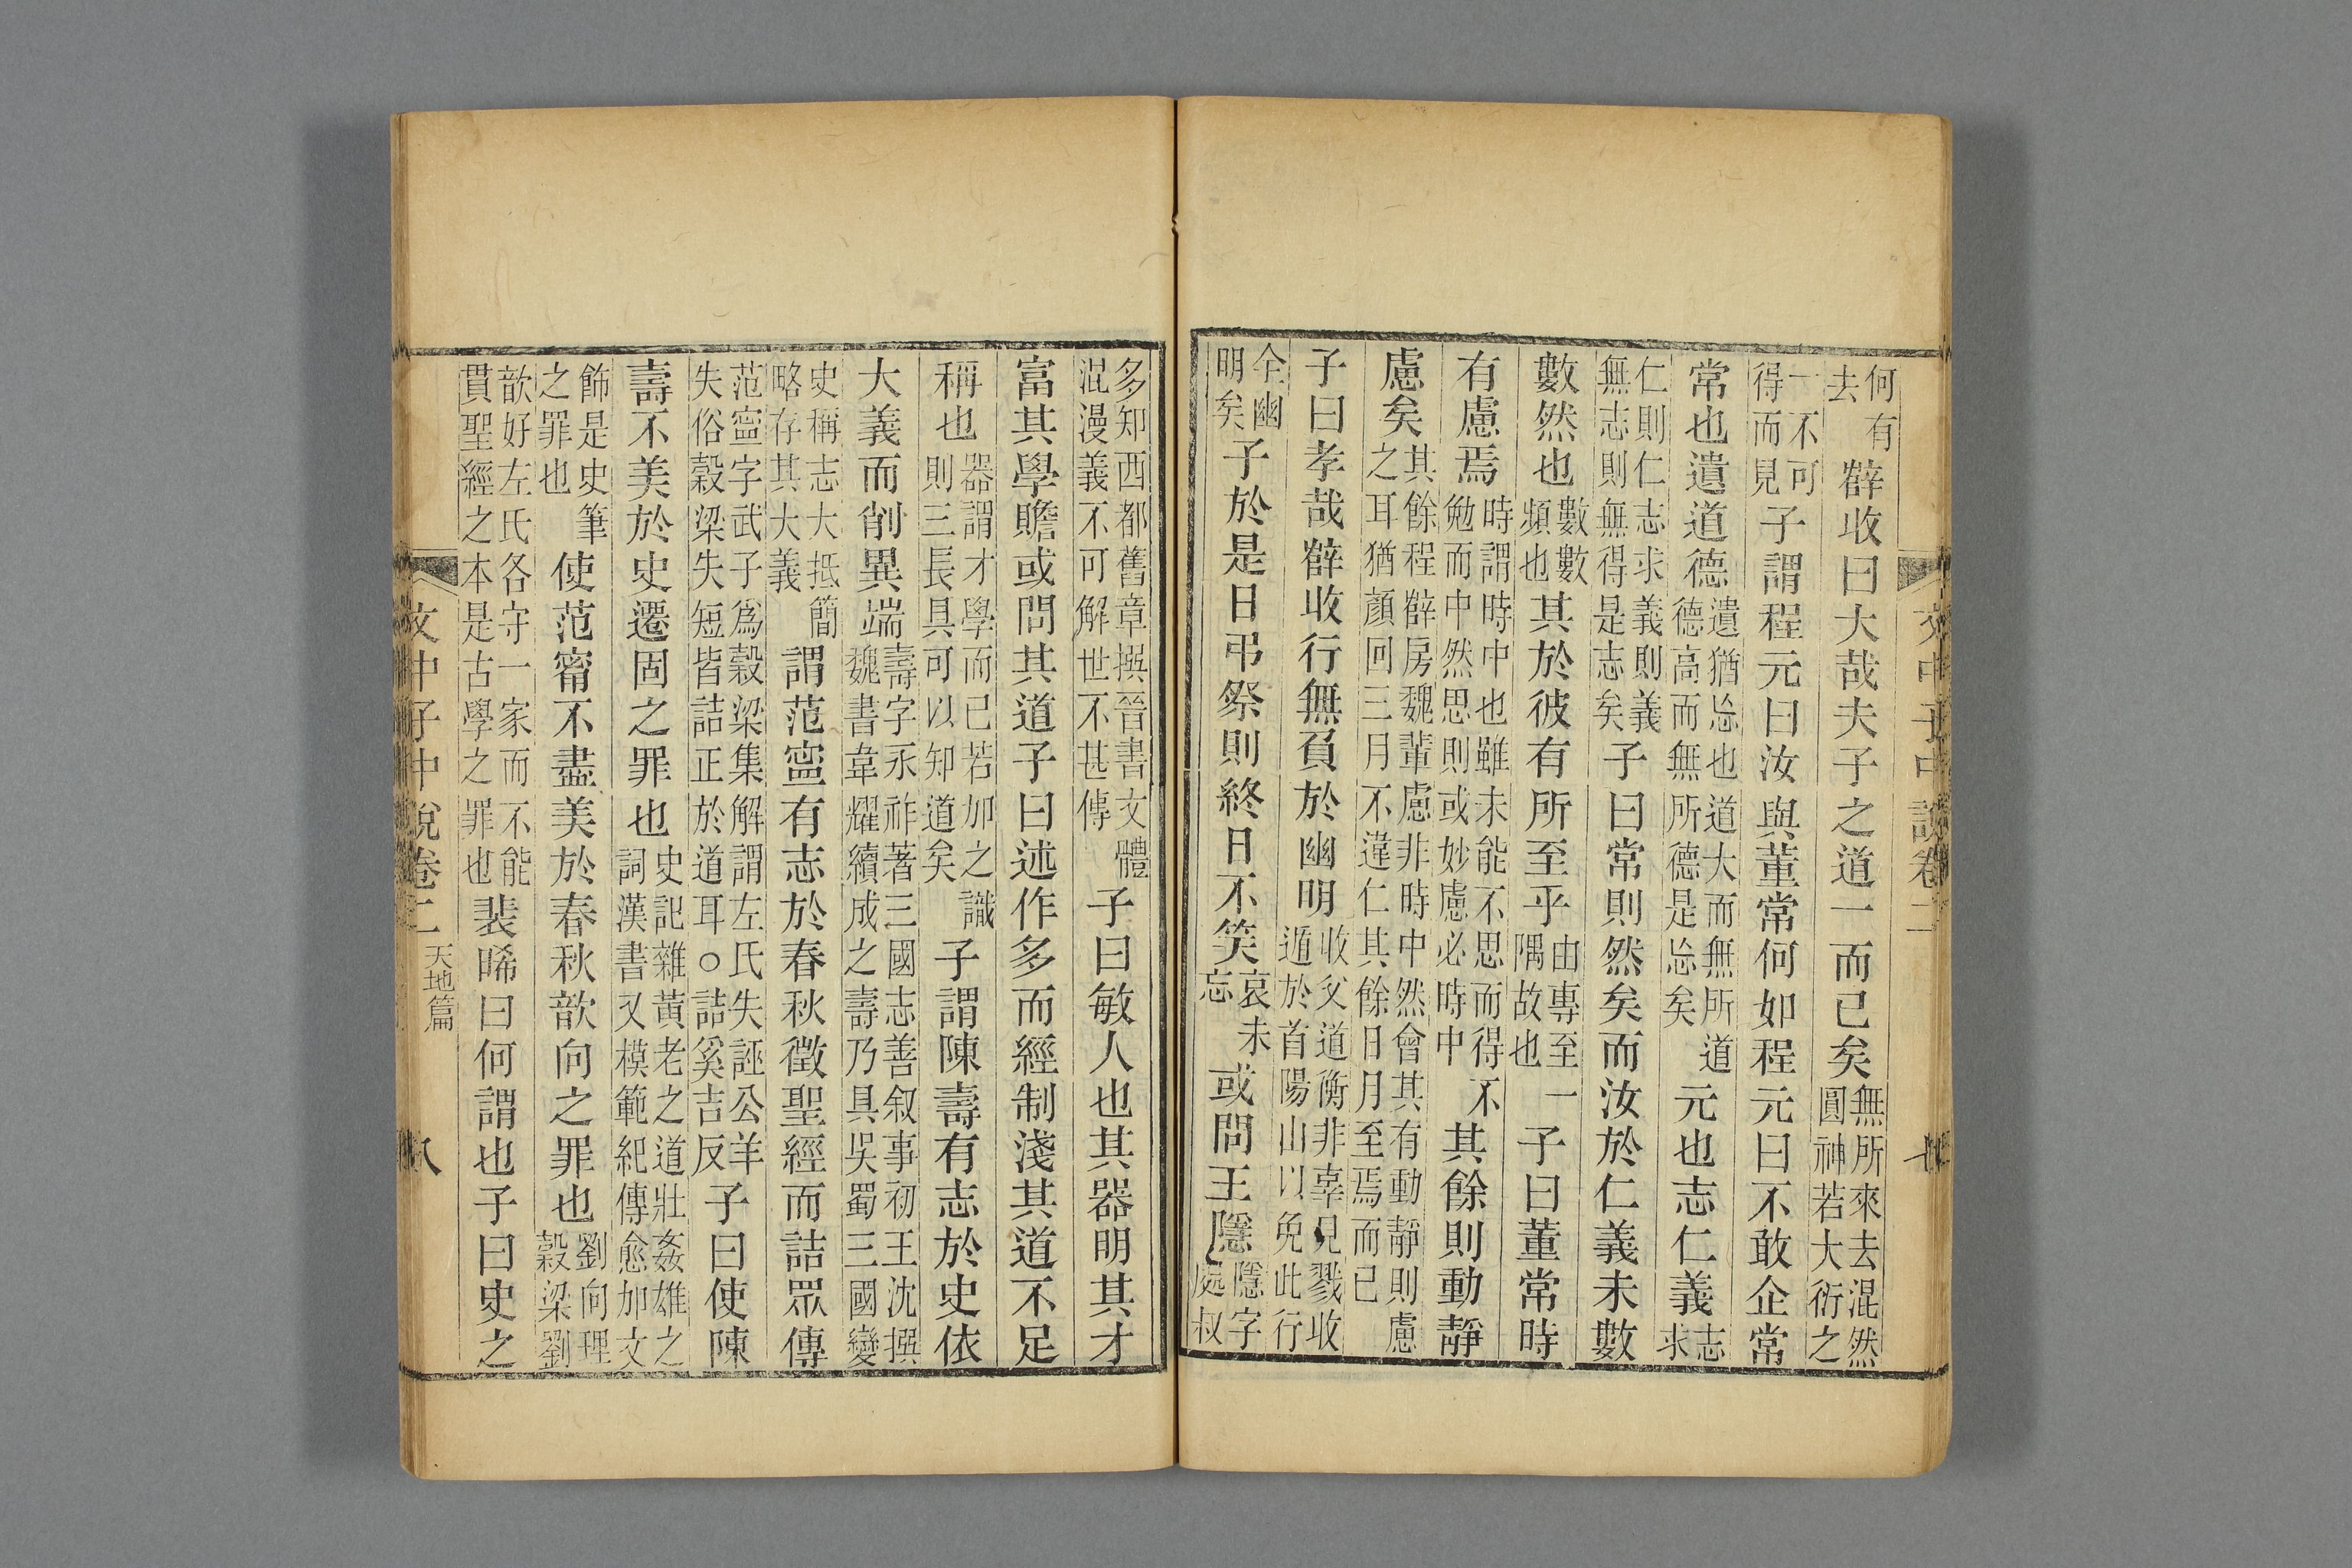 文中子中說卷二
七
何有
去
薛收曰大哉夫子之道一而已矣
無所來去混然
圓神若大衍之
一不可
得而見
子謂程元曰汝與董常何如程元曰不敢企常
常也遺道德
遺猶忘也道大而無所道
德高而無所德是忘矣
元也志仁義
志
求
仁則仁志求義則義
無志則無得是志矣
子曰常則然矣而汝於仁義未數
數然也
數數數
頻也
其於彼有所至乎
由專至一
隅故也
子曰董常時
有慮焉
時謂時中也雖未能不思而得不
勉而中然思則或妙慮必時中
其餘則動靜
慮矣
其餘程薛房魏輩慮非時中然會其有動靜則慮
之耳猶顏回三月不違仁其餘日月至焉而已
子曰孝哉薛收行無負於幽明
收父道衡非辜見戮收
遁於首陽山以免此行
全幽
明矣
子於是日弔祭則終日不笑
哀未
忘
或問王隱
隱字
處叔
多知西都舊章撰晉書文體
混漫義不可解世不甚傳
子曰敏人也其器明其才
富其學贍或問其道子曰述作多而經制淺其道不足
稱也
器謂才學而已若加之識
則三長具可以知道矣
子謂陳壽有志於史依
大義而削異端
壽字承祚著三國志善叙事初王沈撰
魏書韋耀續成之壽乃具吳蜀三國變
史稱志大抵簡
略存其大義
謂范寍有志於春秋徵聖經而詰眾傳
范寍字武子爲穀梁集解謂左氏失誣公羊
失俗穀梁失短皆詰正於道耳○詰奚吉反
子曰使陳
壽不美於史遷固之罪也
史記雜黃老之道壯姦雄之
詞漢書又模範紀傳愈加文
飾是史筆
之罪也
使范甯不盡美於春秋歆向之罪也
劉向理
穀梁劉
歆好左氏各守一家而不能
貫聖經之本是古學之罪也
裴晞曰何謂也子曰史之
文中子中說卷二
天地篇
八